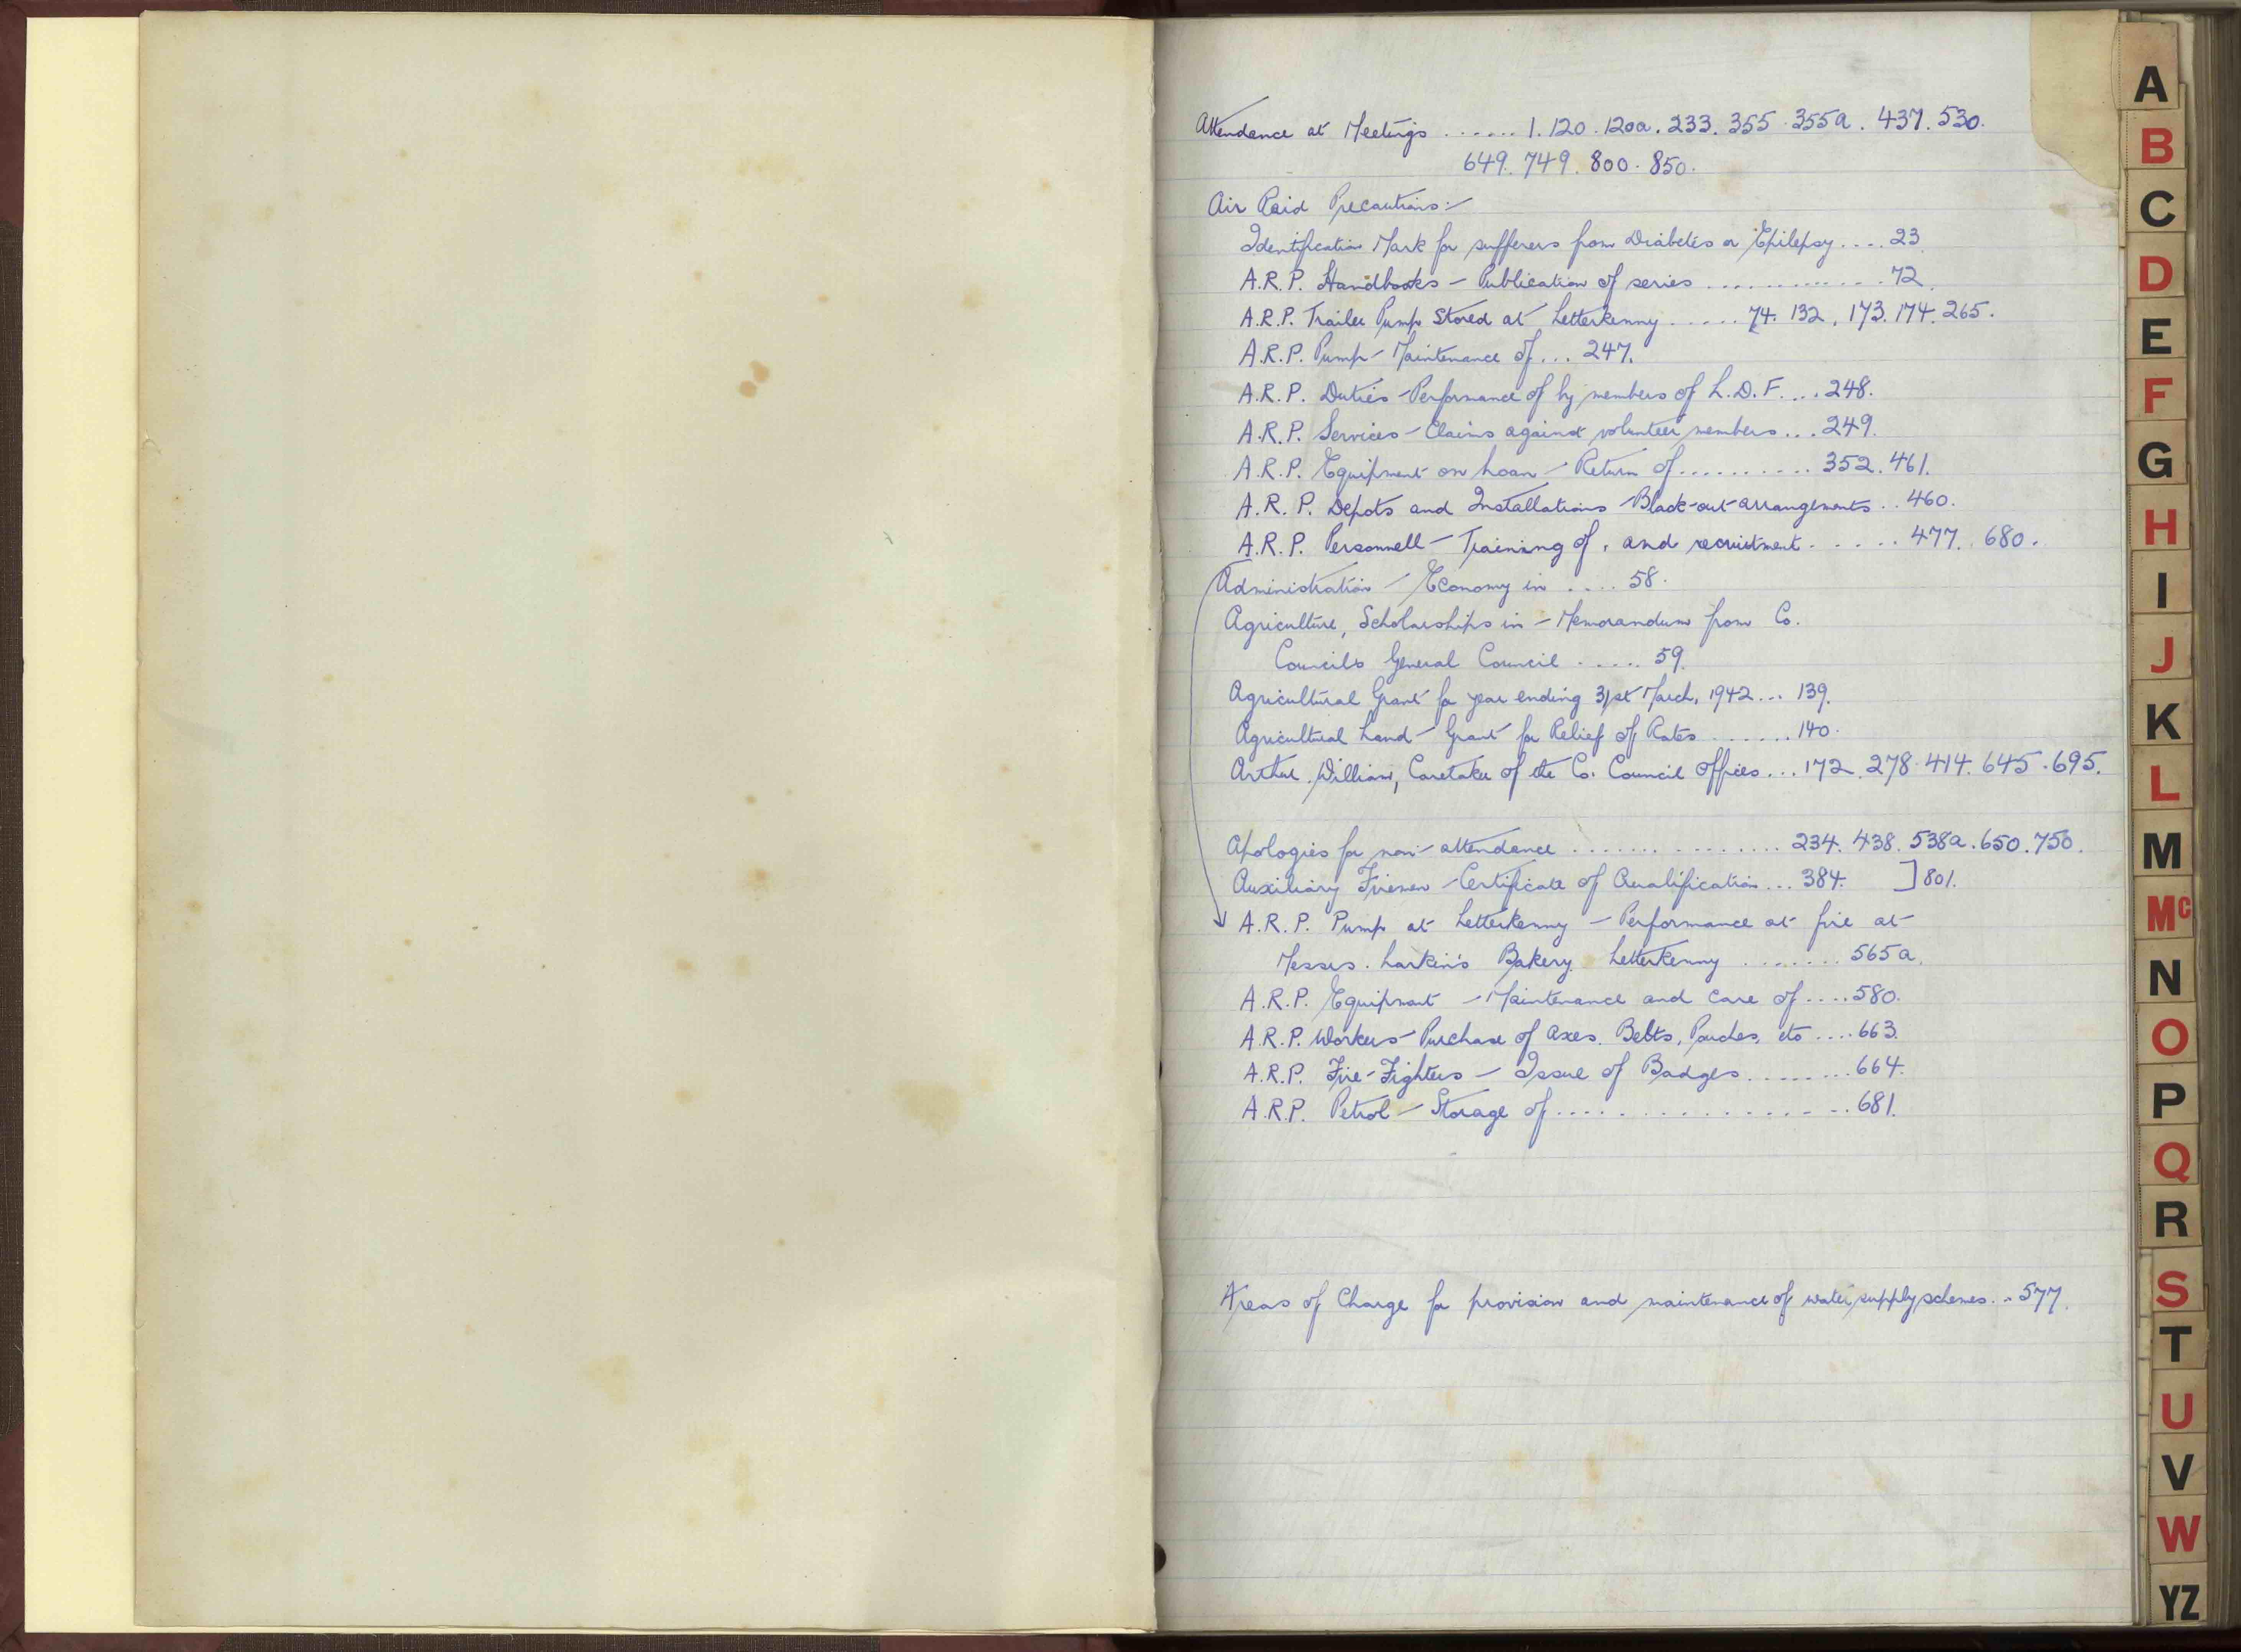 Attendance at Meetings ...... 1. 120. 120a. 233. 355. 355a. 437. 530.
649. 749. 800. 850.
Air Raid Precautions:-
Identification Mark for sufferers from Diabetes or Epilepsy .... 23
A.R.P. Handbooks - Publication of series ............. 72.
A.R.P. Trailer Pump Stored at Letterkenny ..... 74. 132. 173. 174. 265.
A.R.P. Pump - Maintenance of ... 247.
A.R.P. Duties - Performance of by members of L.D.F. ... 248.
A.R.P. Services - Claims against volunteer members ... 249.
A.R.P. Equipment on Loan - Return of .......... 352. 461.
A.R.P. Depots and Installations - Black-out arrangements .. 460.
A.R.P. Personnell - Training of, and recruitment ..... 477. 680.
Administration - Economy in .... 58.
Agriculture, Scholarships in - Memorandum from Co.
Councils General Council ..... 59.
Agricultural Grant for year ending 31st March, 1942 ... 139.
Agricultural Land - Grant for Relief of Rates ....... 140.
Arthur William, Caretaker of the Co. Council Offices ... 172. 278. 414. 645. 695.
Apologies for non-attendance ............... 234. 438. 538a. 650. 750.
Auxiliary Firemen - Certificate of Qualification ... 384. ] 801.
A.R.P. Pump at Letterkenny - Performance at fire at
Messrs. Larkin's Bakery Letterkenny ....... 565a.
A.R.P. Equipment - Maintenance and care of .... 580.
A.R.P. Workers - Purchase of Axes, Belts, Pouches, etc .... 663.
A.R.P. Fire-Fighters - Issue of Badges ........ 664.
A.R.P. Petrol - Storage of ................ 681.
Areas of Charge for provision and maintenance of water supply schemes .. 577.
A
B
C
D
E
F
G
H
I
J
K
L
M
Mc
N
O
P
Q
R
S
T
U
V
W
YZ